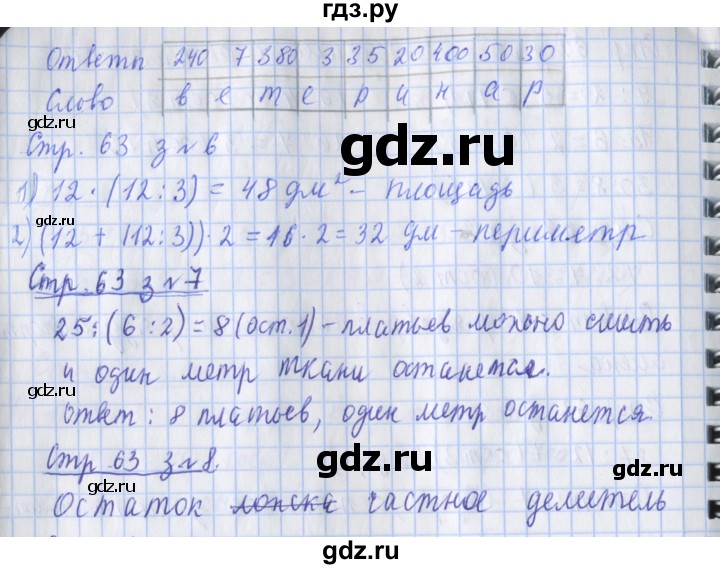 гдз.ру
Ответы 240 7 380 3 35 20 400 50 30
Слово в е т е р и н а р
gdz.ru
Стр. 63 з №6
gdz.ru
1) 12 · (12 : 3) = 48 дм² – площадь
gdz.ru
gdz.ru
2) (12 + (12:3)) · 2 = 16 · 2 = 32 дм – периметр
Стр. 63 з №7
gdz.ru
25 : (6 : 2) = 8 (ост. 1) – платьев можно сшить
и один метр ткани останется.
gdz.ru
gdz.ru
Ответ : 8 платьев, один метр останется
Стр 63 з №8.
gdz.ru
gdz.ru
Остаток частное делитель
gdz.ru